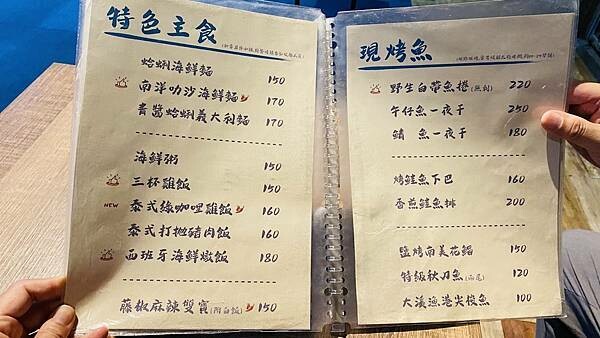 特色主食
蛤蜊海鮮麵 150
南洋叻沙海鮮麵 170
青醬蛤蜊義大利麵 170
海鮮粥 150
三杯雞飯 150
NEW 泰式綠咖哩雞飯 160
泰式打拋豬肉飯 160
西班牙海鮮燉飯 180
藤椒麻辣雙寶(附白飯) 150
現烤魚
野生白帶魚捲(無刺) 220
午仔魚一夜干 250
鯖 魚一夜干 180
烤鮭魚下巴 160
香煎鮭魚排 200
鹽烤南美花鯧 150
特級秋刀魚(兩尾) 120
大溪漁港尖梭魚 100